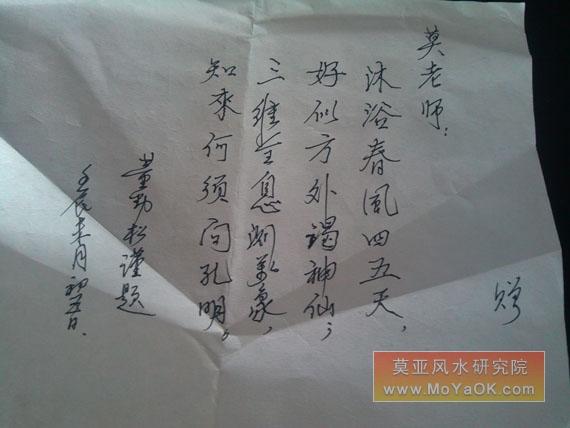 赠
莫老师：
沐浴春风四五天，
好似方外谒神仙；
三维全息测万象，
知来何须问孔明。
董勤松谨题
壬辰年未月初五日.
莫亚风水研究院
www.MoYaOK.com